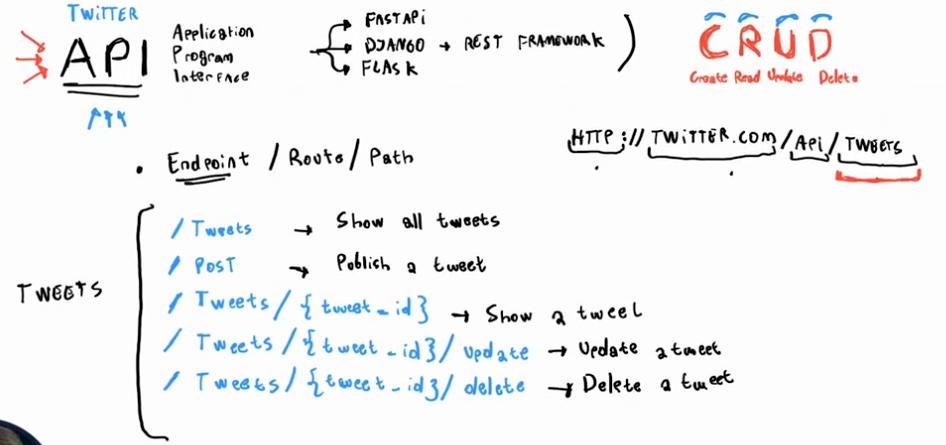 TWITTER
API
Application
Program
Interface
FASTAPI
DJANGO → REST FRAMEWORK
FLASK
CRUD
Create Read Update Delete
HTTP://TWITTER.COM/Api/TWEETS
• Endpoint / Route / Path
TWEETS
/ Tweets → Show all tweets
/ POST → Publish a tweet
/ Tweets / {tweet_id} → Show a tweet
/ Tweets / {tweet_id} / update → Update a tweet
/ Tweets / {tweet_id} / delete → Delete a tweet